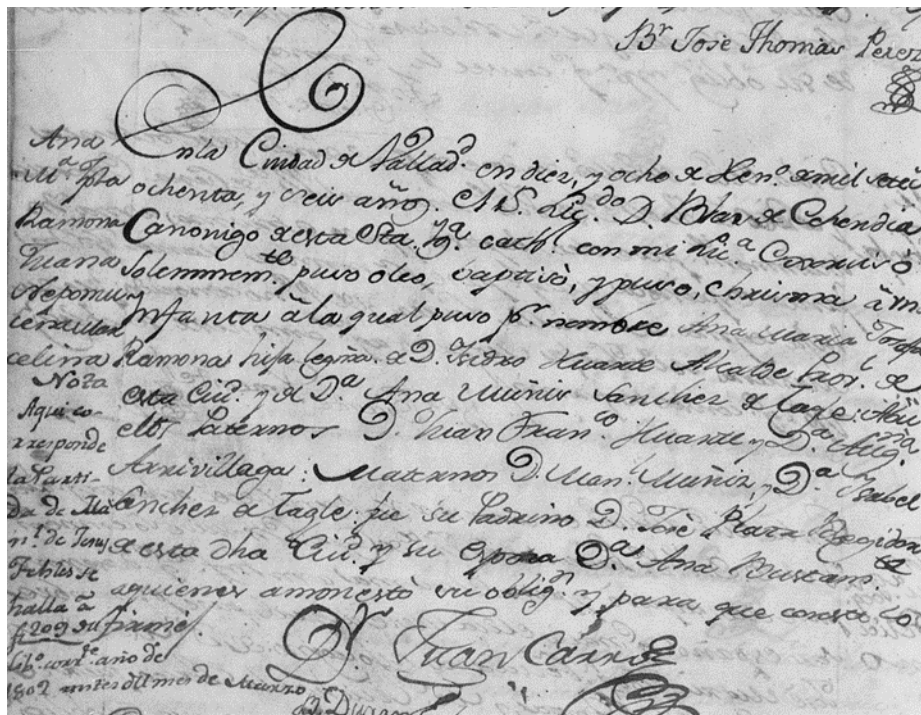 Br José Thomas Perez
Ana
Mª Jpha
Ramona
Juana
Nepomu
cena
celina
Nota
Aqui co-
rresponde
la Parti-
da de Ma
nl. de Jesus
Febles se
halla à
f. 209 su
libº corrte año de
1802 antes del mes de Marzo
Enla Ciudad de Vallad.d en diez, y ocho de Henº de mil sete
ochenta, y seis años. El S. Licdo D. Blas de
Canonigo de esta Sta. Igª cathl. con mi Licª Exorcisó
Solemnemte puso oleo, baptisò, y puso, chrisma à
Infanta à la qual puso pr. nombre Ana Maria Josepha
Ramona hija legma. de D. Isidro Huarte Alcalde Prov.l de
esta Ciud. y de Dª Ana Muñiz Sanchez de Tagle:
elos Paternos D. Juan Franco Huarte, y Dª
Arrivillaga: Maternos D. Manl. Muñiz, y Dª Ysabel
Sanchez de Tagle. fue su Padrino D. José Plata Regidor
de esta dha Ciud. y su esposa Dª Ana Bustamte
aquienes amonestó su obligon. y para que conste lo
firmé.
Dr Juan